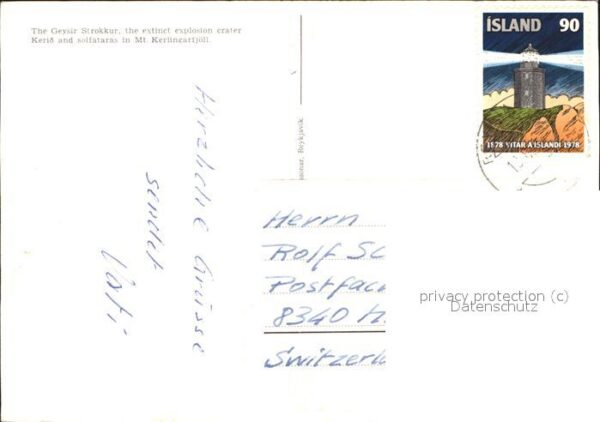 The Geysir Strokkur, the extinct explosion crater
Kerið and solfataras in Mt. Kerlincarfjöll.
Herzliche Grüsse
sendet
Vati
Reykjavík.
ÍSLAND 90
1878 VITAR Á ÍSLANDI 1978
Herrn
Rolf Sc
Postfac
8340 H
Switzerl
privacy protection (c)
Datenschutz